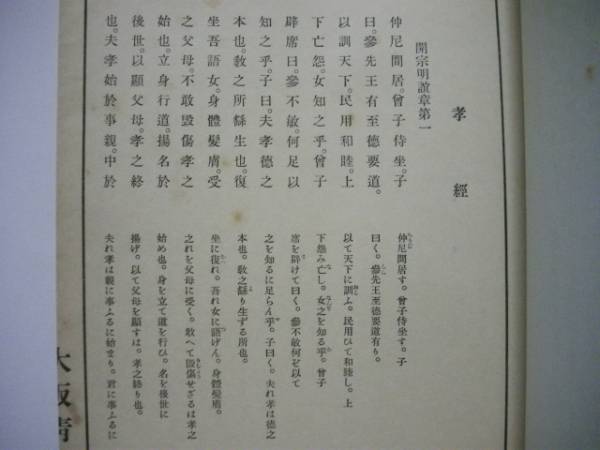 孝經
開宗明誼章第一
仲尼閒居。曾子侍坐。子
曰。參先王有至德要道。
以訓天下。民用和睦。上
下亡怨。女知之乎。曾子
辟席曰。參不敏。何足以
知之乎。子曰。夫孝德之
本也。敎之所繇生也。復
坐吾語女。身體髮膚。受
之父母。不敢毀傷孝之
始也。立身行道。揚名於
後世。以顯父母。孝之終
也。夫孝始於事親。中於
仲尼閒居す。曾子侍坐す。子
曰く。參先王至德要道有り。
以て天下に訓ふ。民用ひて和睦し。上
下怨み亡し。女之を知る乎。曾子
席を辟けて曰く。參不敏何ぞ以て
之を知るに足らん乎。子曰く。夫れ孝は德之
本也。敎之繇り生ずる所也。
坐に復れ。吾れ女に語げん。身體髮膚。
之れを父母に受く。敢へて毀傷せざるは孝之
始め也。身を立て道を行ひ。名を後世に
揚げ。以て父母を顯すは。孝之終り也。
夫れ孝は親に事ふるに始まり。君に事ふるに
大阪